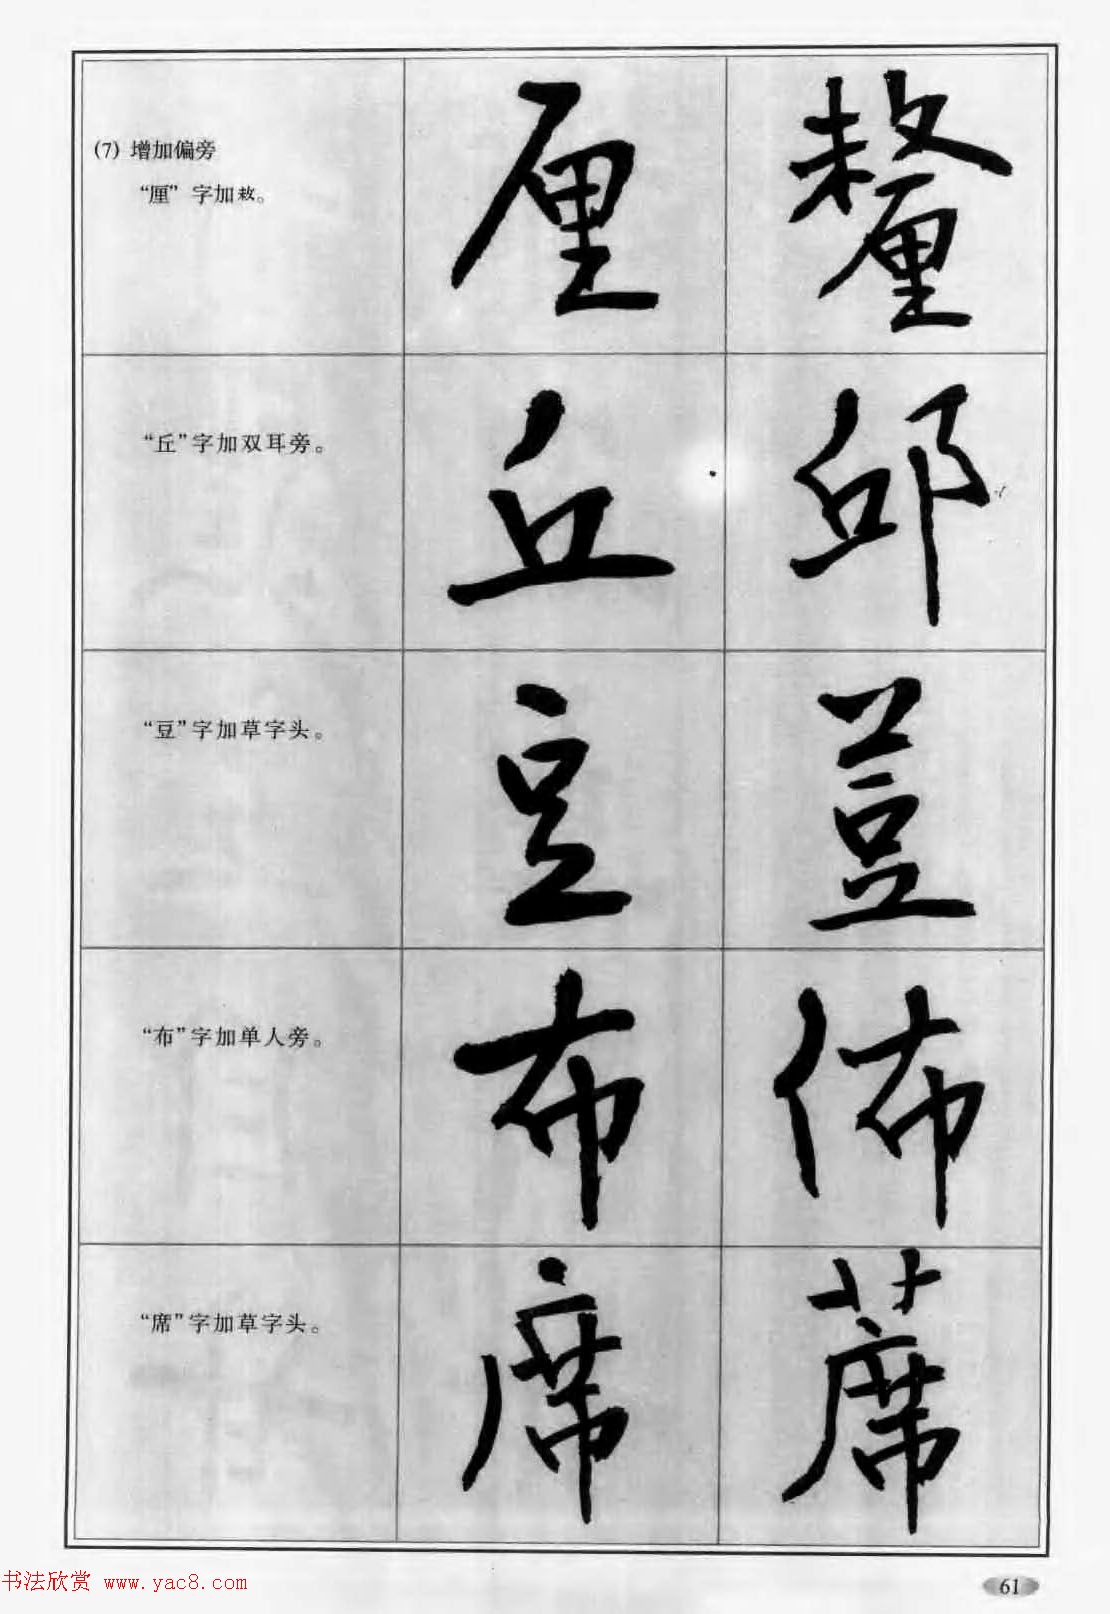 (7) 增加偏旁
“厘” 字加敖。
厘 釐
“丘”字加双耳旁。
丘 邱
“豆”字加草字头。
豆 荳
“布”字加单人旁。
布 佈
“席”字加草字头。
席 蓆
书法欣赏 www.yac8.com
61